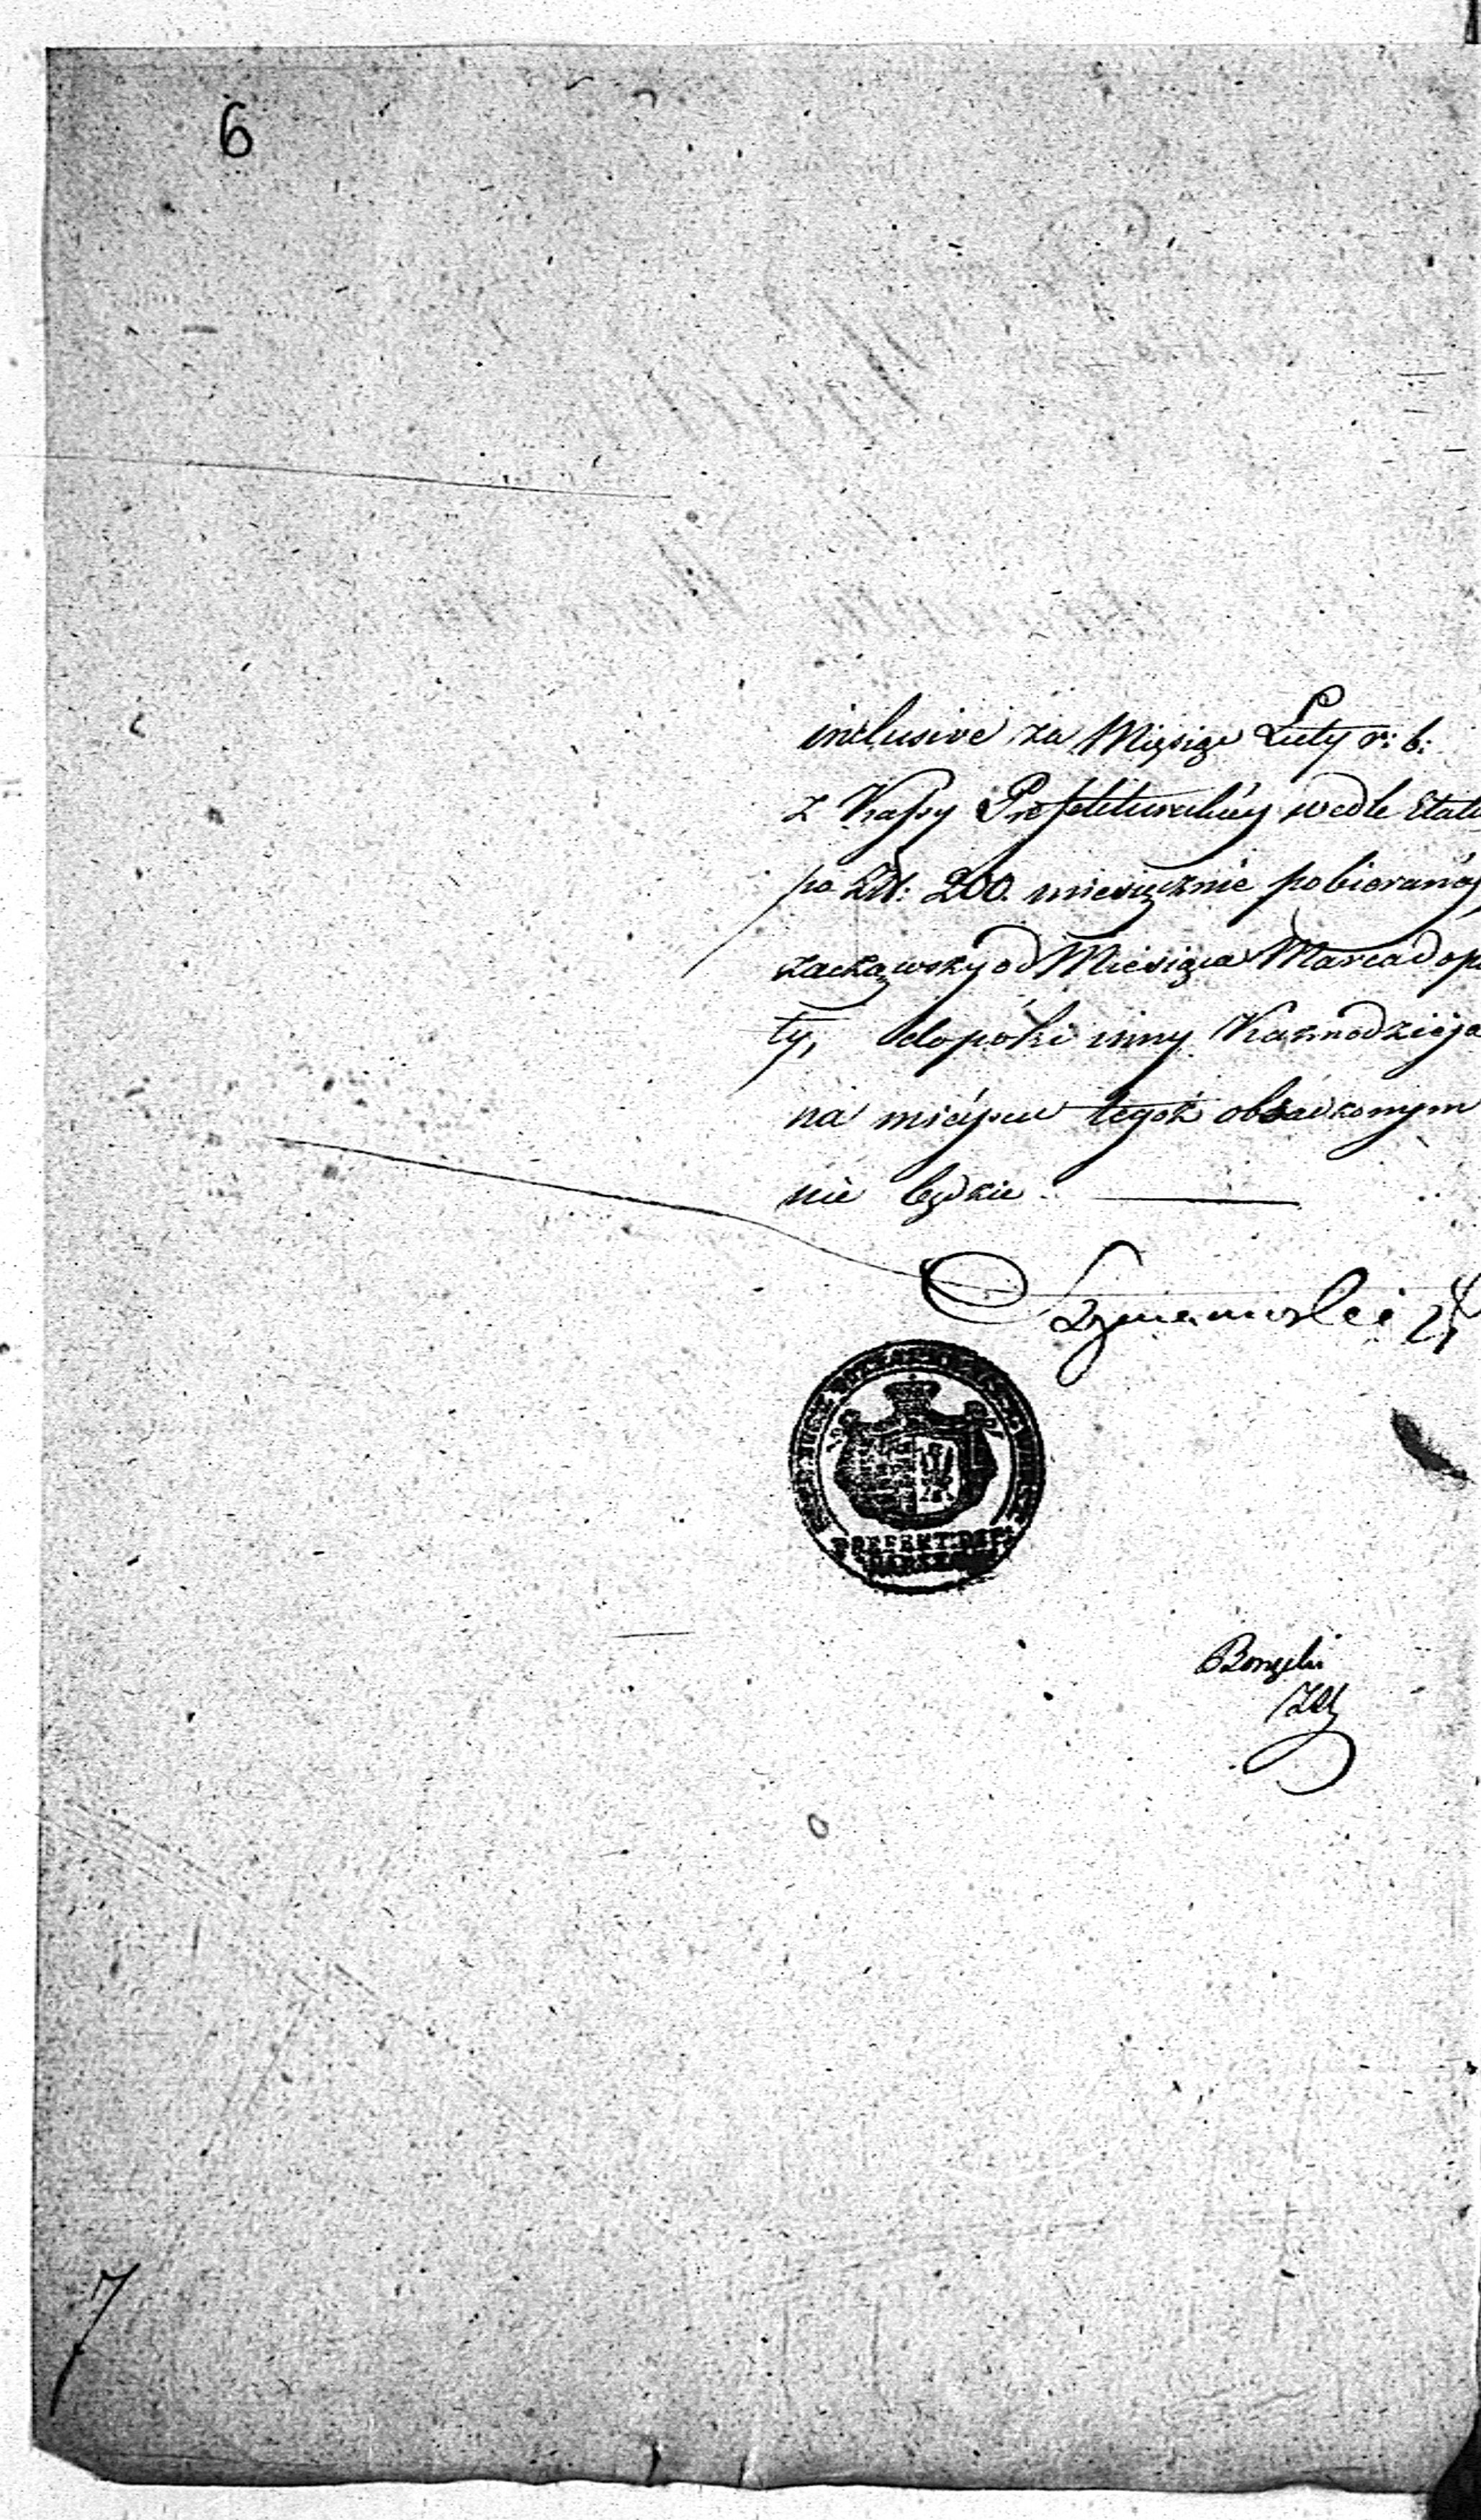 6
inclusive za Miesiąc Luty r: b:
z Kassy Prefekturalney wedle Etatu
po Złł: 200. miesięcznie pobieraną,
zacząwszy od Miesiąca Marca dopó
ty, dopóki inny Kaznodzieja
na mieyscu tegoż obsadzonym
nie będzie.
Szymanowski
PREFEKT: DEP:
7